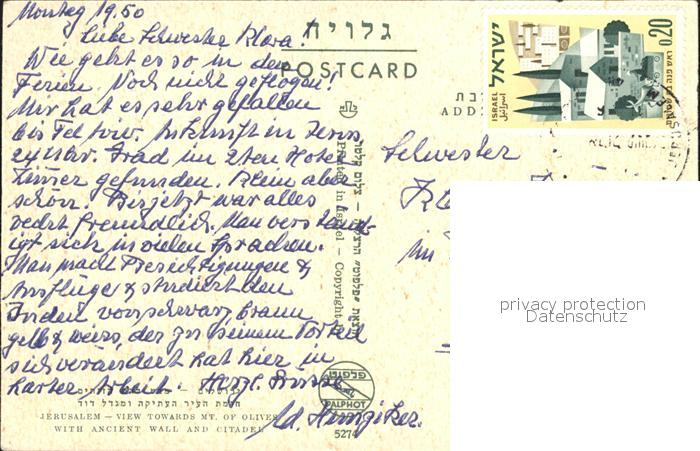 Montag 19.50
Liebe Schwester Klara!
Wie geht es so in den
Ferien. Noch nicht geflogen!
Mir hat es sehr gefallen
bis Tel Aviv. Ankunft in Jerus.
24 Uhr. Grad im 2ten Hotel
Zimmer gefunden. Klein aber
schön. Bis jetzt war alles
recht freundlich. Man verständ-
igt sich in vielen Sprachen.
Man macht Besichtigungen &
Ausflüge & studiert den
Juden von schwarz braun
gelb & weiss, der zu seinem Vorteil
sich verändert hat hier in
harter Arbeit. Herzl. Grüsse
Ad. Hunziker.
גלויה
POSTCARD
ADD
ישראל
ISRAEL
اسرائيل
0.20
Schwester
im
Printed in Israel – Copyright
PALPHOT
חומת העיר העתיקה ומגדל דוד
JERUSALEM – VIEW TOWARDS MT. OF OLIVES
WITH ANCIENT WALL AND CITADEL
5274
privacy protection
Datenschutz